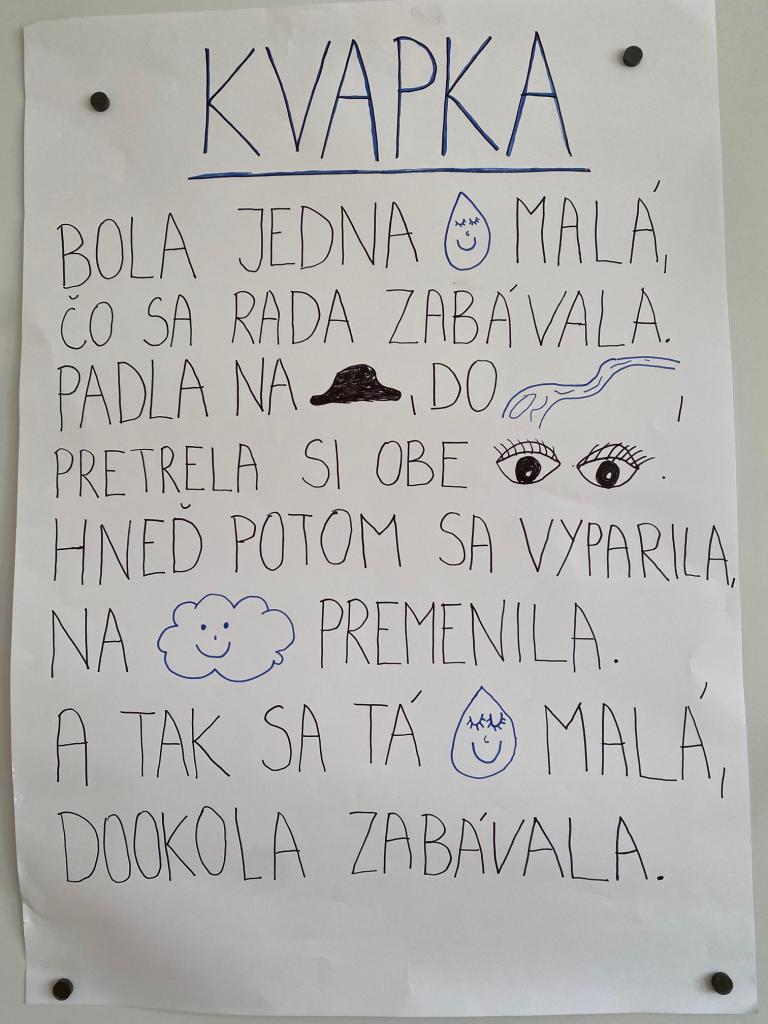 KVAPKA
BOLA JEDNA MALÁ,
ČO SA RADA ZABÁVALA.
PADLA NA , DO ,
PRETRELA SI OBE .
HNEĎ POTOM SA VYPARILA,
NA PREMENILA.
A TAK SA TÁ MALÁ,
DOOKOLA ZABÁVALA.